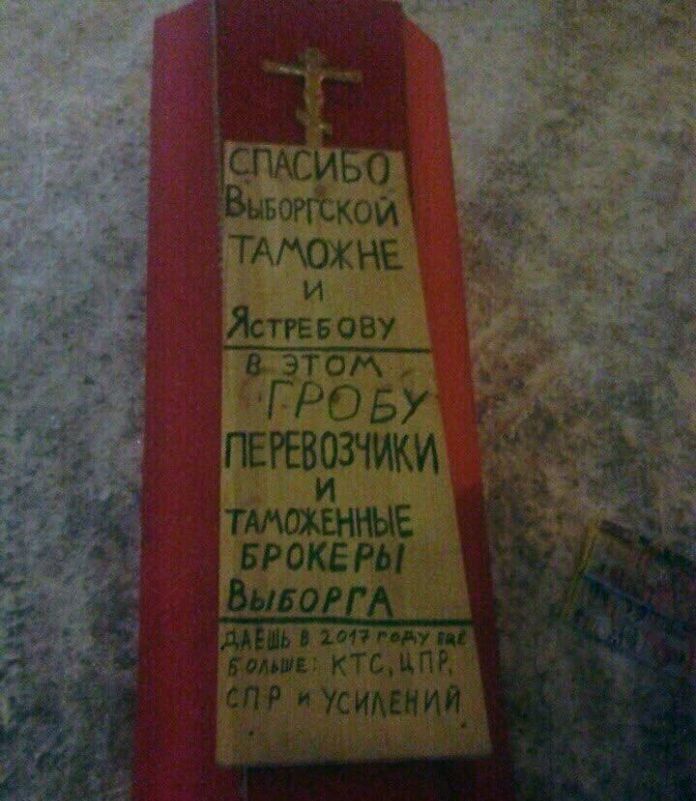 СПАСИБО
ВЫБОРГСКОЙ
ТАМОЖНЕ
И
ЯСТРЕБОВУ
В ЭТОМ
ГРОБУ
ПЕРЕВОЗЧИКИ
И
ТАМОЖЕННЫЕ
БРОКЕРЫ
ВЫБОРГА
ДАЕШЬ В 2017 ГОДУ ЕЩЕ
БОЛЬШЕ: КТС, ЦПР,
СПР И УСИЛЕНИЙ